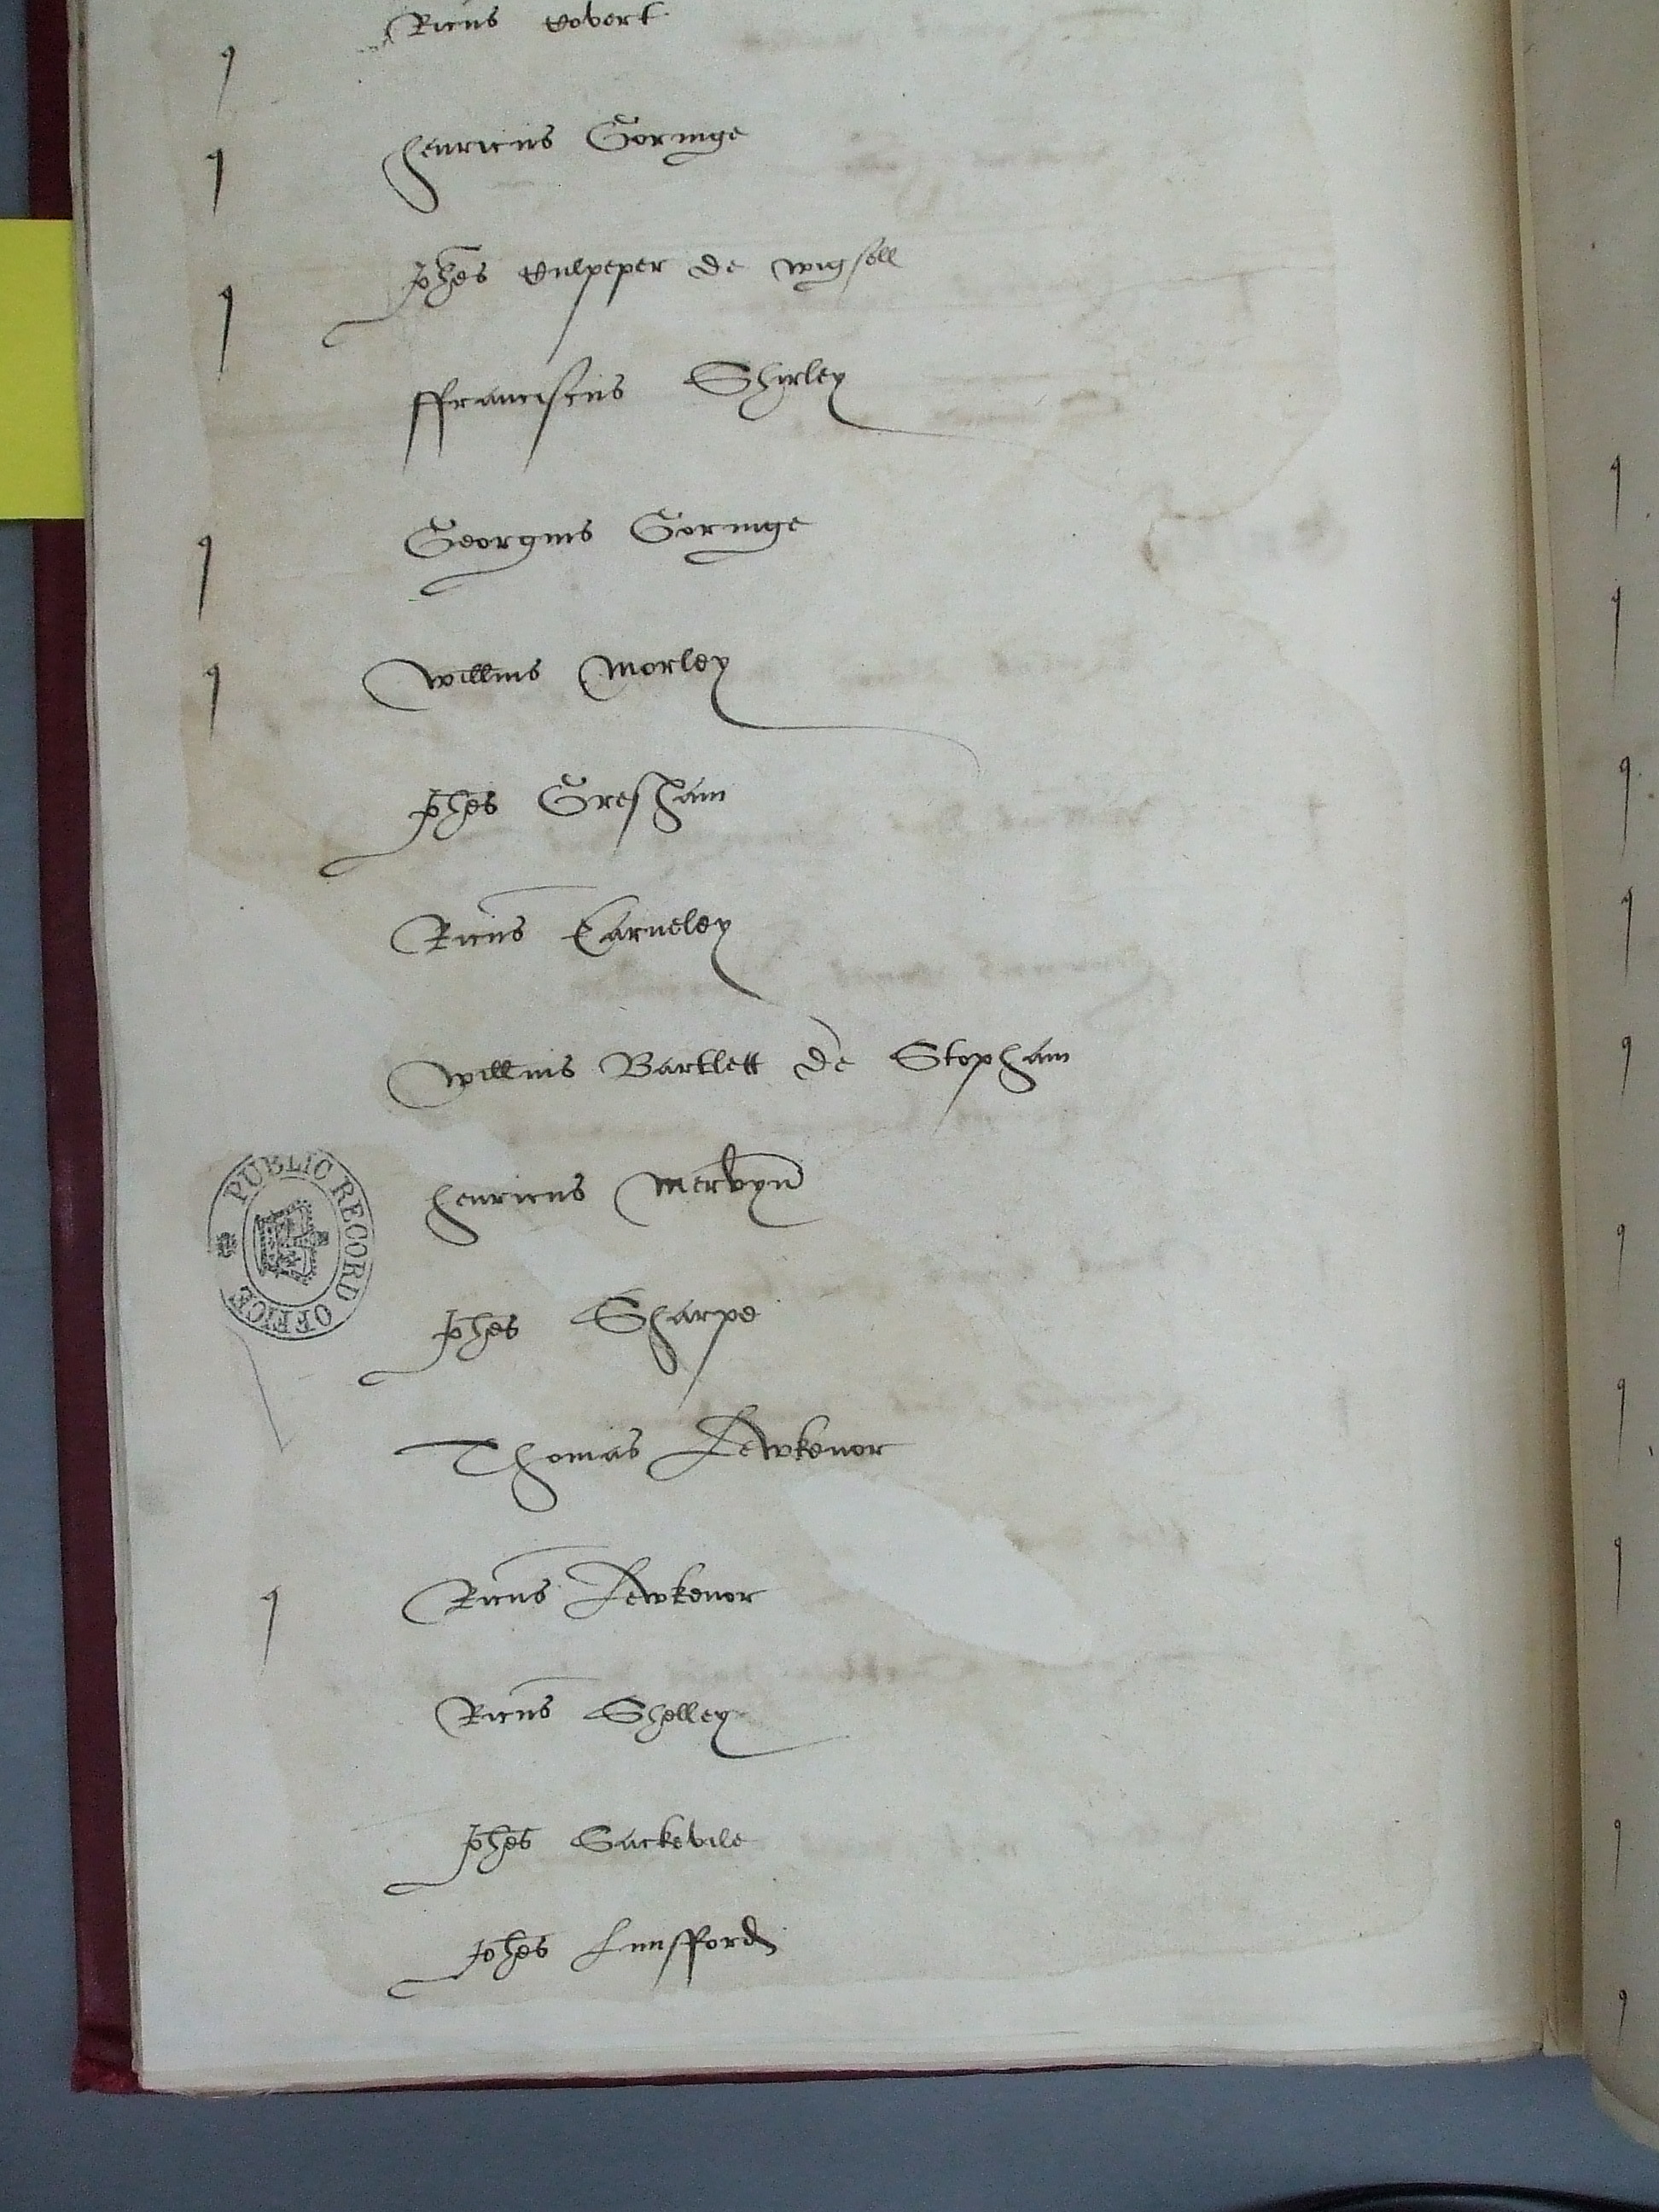 Ricus Covert
Henricus Goringe
Johes Culpeper de Wigsell
ffranciscus Shirley
Georgius Goringe
Willms Morley
Johes Gresham
Ricus Earneley
Willms Bartlett de Stopham
Henricus Mervyn
Johes Sharpe
Thomas Lewkenor
Ricus Lewkenor
Ricus Shelley
Johes Sackevile
Johes Lunsfford
PUBLIC RECORD OFFICE